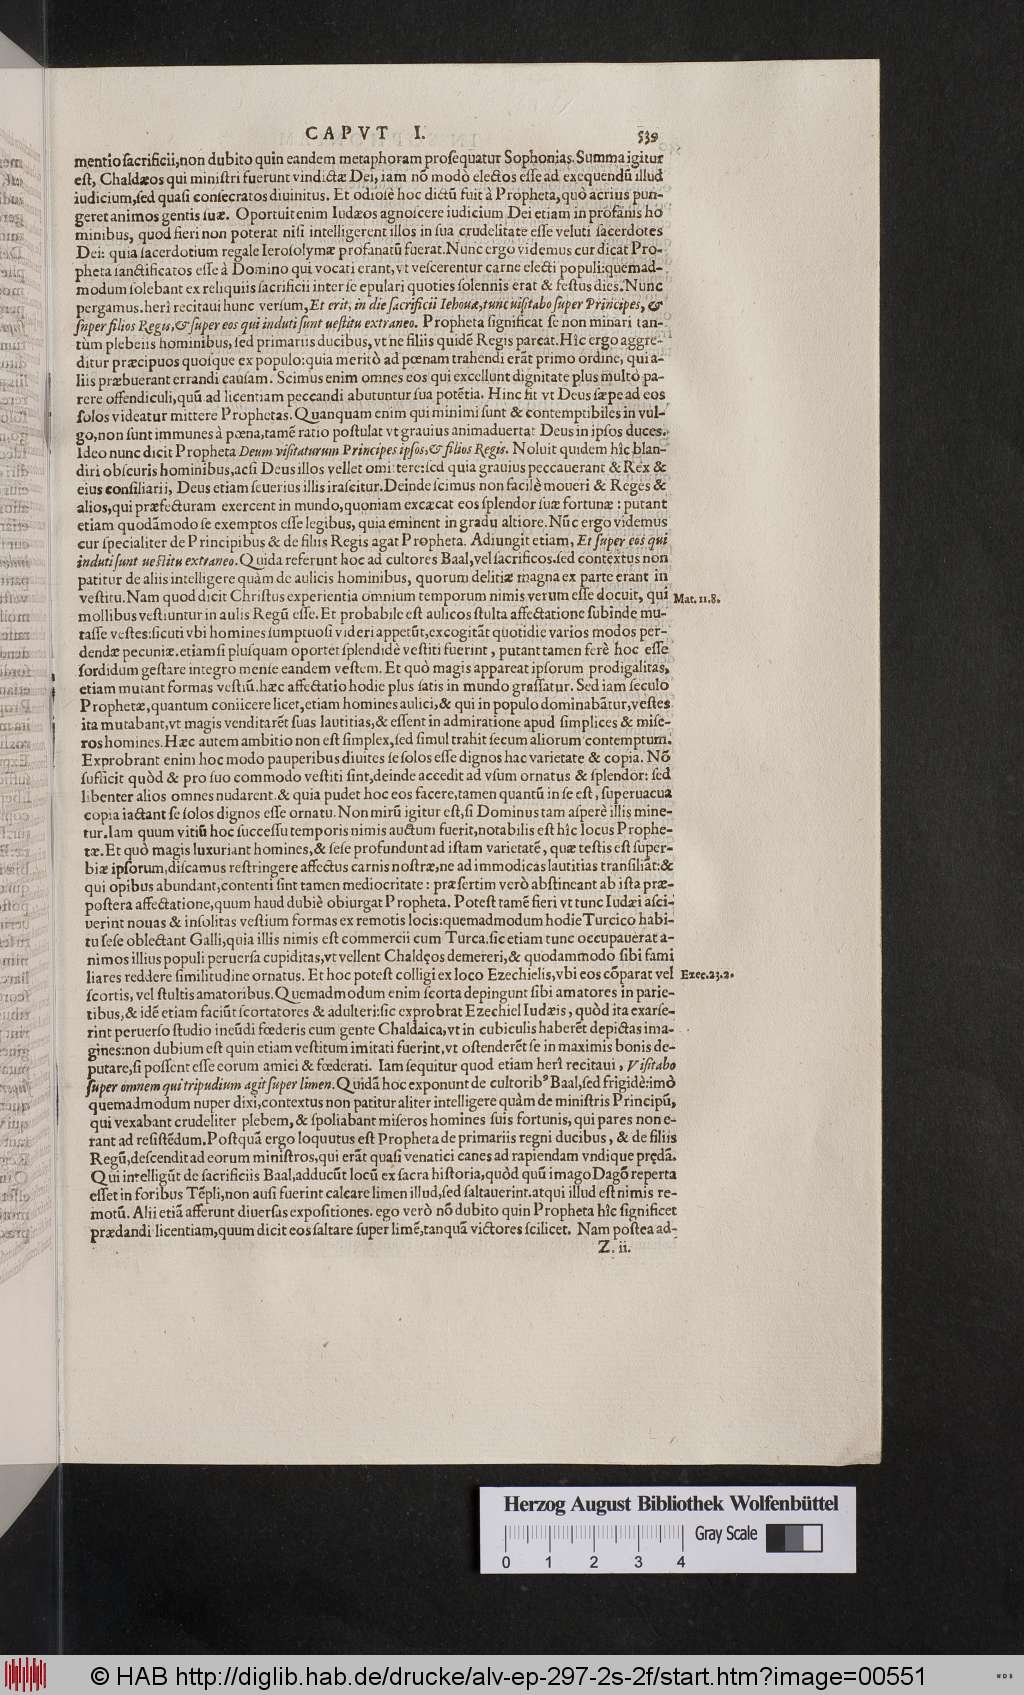 CAPVT I. 539
mentio sacrificii,non dubito quin eandem metaphoram prosequatur Sophonias. Summa igitur
est, Chaldæos qui ministri fuerunt vindictæ Dei, iam nō modò electos esse ad exequendū illud
iudicium,sed quasi consecratos diuinitus. Et odiosè hoc dictū fuit à Propheta,quò acrius pun-
geret animos gentis suæ. Oportuit enim Iudæos agnoscere iudicium Dei etiam in profanis ho
minibus, quod fieri non poterat nisi intelligerent illos in sua crudelitate esse veluti sacerdotes
Dei: quia sacerdotium regale Ierosolymæ profanatū fuerat.Nunc ergo videmus cur dicat Pro-
pheta sanctificatos esse à Domino qui vocati erant,vt vescerentur carne electi populi:quemad-
modum solebant ex reliquiis sacrificii inter se epulari quoties solennis erat & festus dies. Nunc
pergamus.heri recitaui hunc versum,Et erit, in die sacrificii Iehouæ,tunc uisitabo super Principes, &
super filios Regis,& super eos qui induti sunt uestitu extraneo. Propheta significat se non minari tan-
tùm plebeiis hominibus, sed primariis ducibus, vt ne filiis quidē Regis parcat.Hîc ergo aggre-
ditur præcipuos quosque ex populo:quia meritò ad pœnam trahendi erāt primo ordine, qui a-
liis præbuerant errandi causam. Scimus enim omnes eos qui excellunt dignitate plus multò pa-
rere offendiculi,quū ad licentiam peccandi abutuntur sua potētia. Hinc fit vt Deus sæpe ad eos
solos videatur mittere Prophetas. Quanquam enim qui minimi sunt & contemptibiles in vul-
go,non sunt immunes à pœna,tamē ratio postulat vt grauius animaduertat Deus in ipsos duces.
Ideo nunc dicit Propheta Deum visitaturum Principes ipsos,& filios Regis. Noluit quidem hîc blan-
diri obscuris hominibus,acsi Deus illos vellet omittere:sed quia grauius peccauerant & Rex &
eius consiliarii, Deus etiam seuerius illis irascitur.Deinde scimus non facilè moueri & Reges &
alios,qui præfecturam exercent in mundo,quoniam excæcat eos splendor suæ fortunæ : putant
etiam quodāmodo se exemptos esse legibus, quia eminent in gradu altiore.Nūc ergo videmus
cur specialiter de Principibus & de filiis Regis agat Propheta. Adiungit etiam, Et super eos qui
induti sunt uestitu extraneo.Quida referunt hoc ad cultores Baal,vel sacrificos.sed contextus non
patitur de aliis intelligere quàm de aulicis hominibus, quorum delitiæ magna ex parte erant in
vestitu.Nam quod dicit Christus experientia omnium temporum nimis verum esse docuit, qui Mat.11.8.
mollibus vestiuntur in aulis Regū esse. Et probabile est aulicos stulta affectatione subinde mu-
tasse vestes:sicuti vbi homines sumptuosi videri appetūt,excogitāt quotidie varios modos per-
dendæ pecuniæ.etiamsi plusquam oportet splendidè vestiti fuerint , putant tamen ferè hoc esse
sordidum gestare integro mense eandem vestem. Et quò magis appareat ipsorum prodigalitas,
etiam mutant formas vestiū.hæc affectatio hodie plus satis in mundo grassatur. Sed iam seculo
Prophetæ,quantum coniicere licet,etiam homines aulici,& qui in populo dominabātur,vestes
ita mutabant,vt magis venditarēt suas lautitias,& essent in admiratione apud simplices & mise-
ros homines.Hæc autem ambitio non est simplex,sed simul trahit secum aliorum contemptum.
Exprobrant enim hoc modo pauperibus diuites se solos esse dignos hac varietate & copia. Nō
sufficit quòd & pro suo commodo vestiti sint,deinde accedit ad vsum ornatus & splendor: sed
libenter alios omnes nudarent.& quia pudet hoc eos facere,tamen quantū in se est, superuacua
copia iactant se solos dignos esse ornatu.Non mirū igitur est,si Dominus tam asperè illis mine-
tur.Iam quum vitiū hoc successu temporis nimis auctum fuerit,notabilis est hîc locus Prophe-
tæ.Et quò magis luxuriant homines,& sese profundunt ad istam varietatē, quæ testis est super-
biæ ipsorum,discamus restringere affectus carnis nostræ,ne ad immodicas lautitias transiliāt:&
qui opibus abundant,contenti sint tamen mediocritate : præsertim verò abstineant ab ista præ-
postera affectatione,quum haud dubiè obiurgat Propheta. Potest tamē fieri vt tunc Iudæi asci-
uerint nouas & insolitas vestium formas ex remotis locis:quemadmodum hodie Turcico habi-
tu sese oblectant Galli,quia illis nimis est commercii cum Turca.sic etiam tunc occupauerat a-
nimos illius populi peruersa cupiditas,vt vellent Chaldęos demereri,& quodammodo sibi fami
liares reddere similitudine ornatus. Et hoc potest colligi ex loco Ezechielis,vbi eos cōparat vel Ezec.23.2.
scortis, vel stultis amatoribus. Quemadmodum enim scorta depingunt sibi amatores in parie-
tibus,& idē etiam faciūt scortatores & adulteri:sic exprobrat Ezechiel Iudæis, quòd ita exarse-
rint peruerso studio ineūdi fœderis cum gente Chaldaica,vt in cubiculis haberēt depictas ima-
gines:non dubium est quin etiam vestitum imitati fuerint,vt ostenderēt se in maximis bonis de-
putare,si possent esse eorum amici & fœderati. Iam sequitur quod etiam heri recitaui , Visitabo
super omnem qui tripudium agit super limen.Quidā hoc exponunt de cultorib⁹ Baal,sed frigidè:imò
quemadmodum nuper dixi,contextus non patitur aliter intelligere quàm de ministris Principū,
qui vexabant crudeliter plebem,& spoliabant miseros homines suis fortunis, qui pares non e-
rant ad resistēdum.Postquā ergo loquutus est Propheta de primariis regni ducibus, & de filiis
Regū,descendit ad eorum ministros,qui erāt quasi venatici canes ad rapiendam vndique prędā.
Qui intelligūt de sacrificiis Baal,adducūt locū ex sacra historia,quòd quū imago Dagō reperta
esset in foribus Tēpli,non ausi fuerint calcare limen illud,sed saltauerint.atqui illud est nimis re-
motū. Alii etiā afferunt diuersas expositiones. ego verò nō dubito quin Propheta hîc significet
prædandi licentiam,quum dicit eos saltare super limē,tanquā victores scilicet. Nam postea ad-
Z. ii.
Herzog August Bibliothek Wolfenbüttel
Gray Scale
0 1 2 3 4
© HAB http://diglib.hab.de/drucke/alv-ep-297-2s-2f/start.htm?image=00551